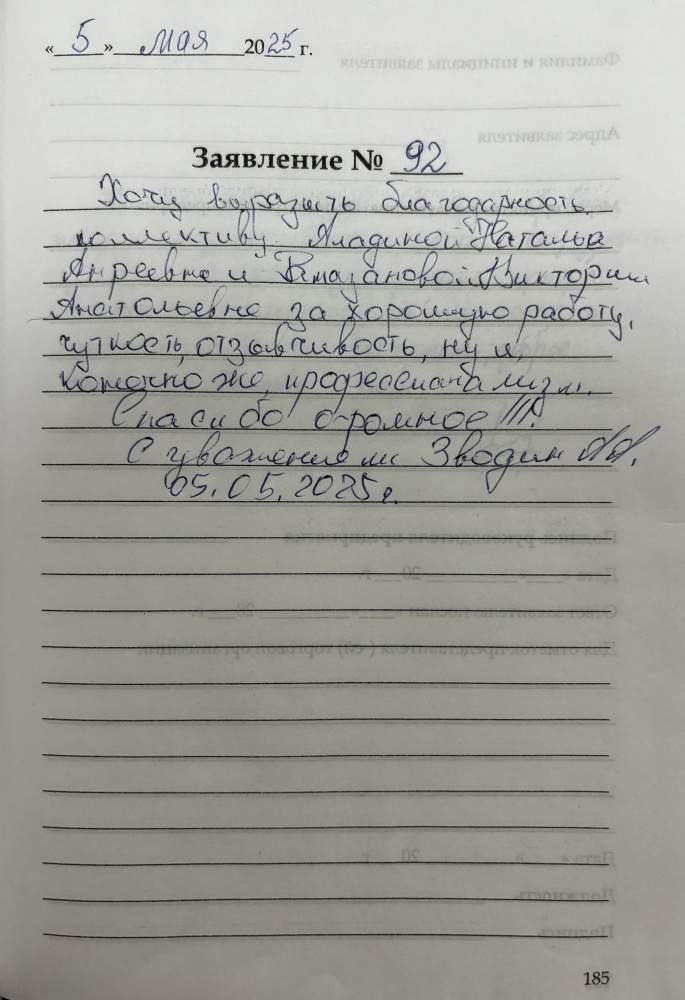 « 5 » мая 2025 г.
Заявление № 92
Хочу выразить благодарность
коллективу. Аладиной Наталье
Анреевне и Виктории
Анатольевне за хорошую работу,
чуткость, отзывчивость, ну и,
конечно же, професcианализм.
Спасибо огромное !!!
С уважением Зводин А.А.
05.05.2025г.
185